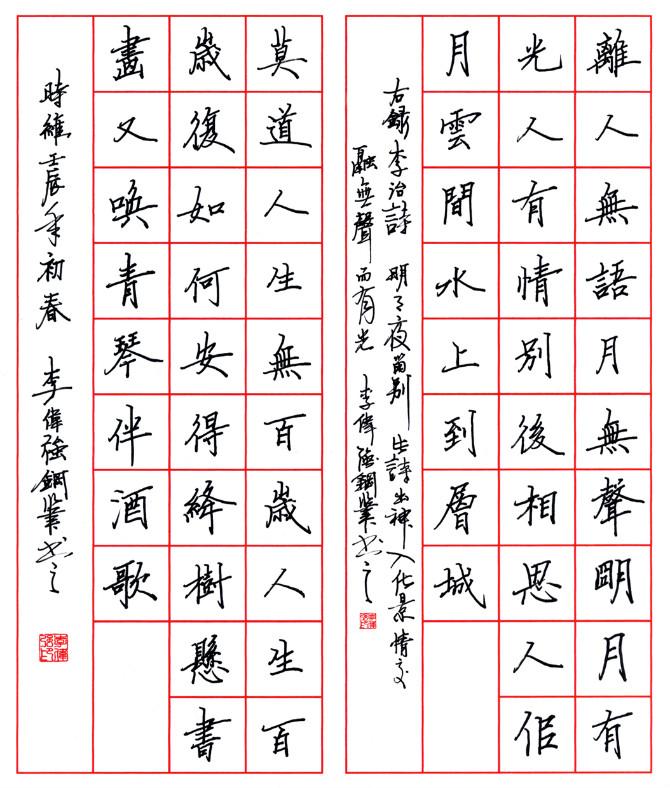 離人無語月無聲明月有
光人有情別後相思人佀
月雲間水上到層城
右録李冶詩 明月夜留別 此詩出神入化景情交
融無聲而有光 李偉強鋼筆書之
莫道人生無百歲人生百
歲復如何安得絳樹懸書
畫又喚青琴伴酒歌
時維壬辰年初春 李偉強鋼筆書之